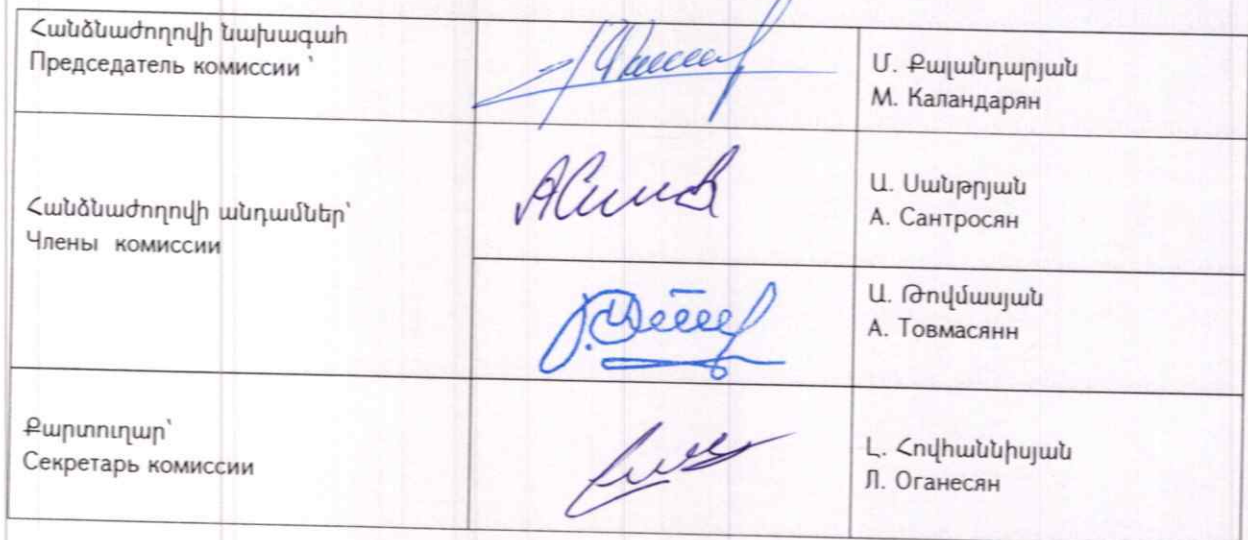 Հանձնաժողովի նախագահ
Председатель комиссии ՝
Մ. Քալանդարյան
М. Каландарян
Հանձնաժողովի անդամներ՝
Члены комиссии
Ա. Սանթրյան
А. Сантросян
Ա. Թովմասյան
А. Товмасянн
Քարտուղար՝
Секретарь комиссии
Լ. Հովհաննիսյան
Л. Оганесян